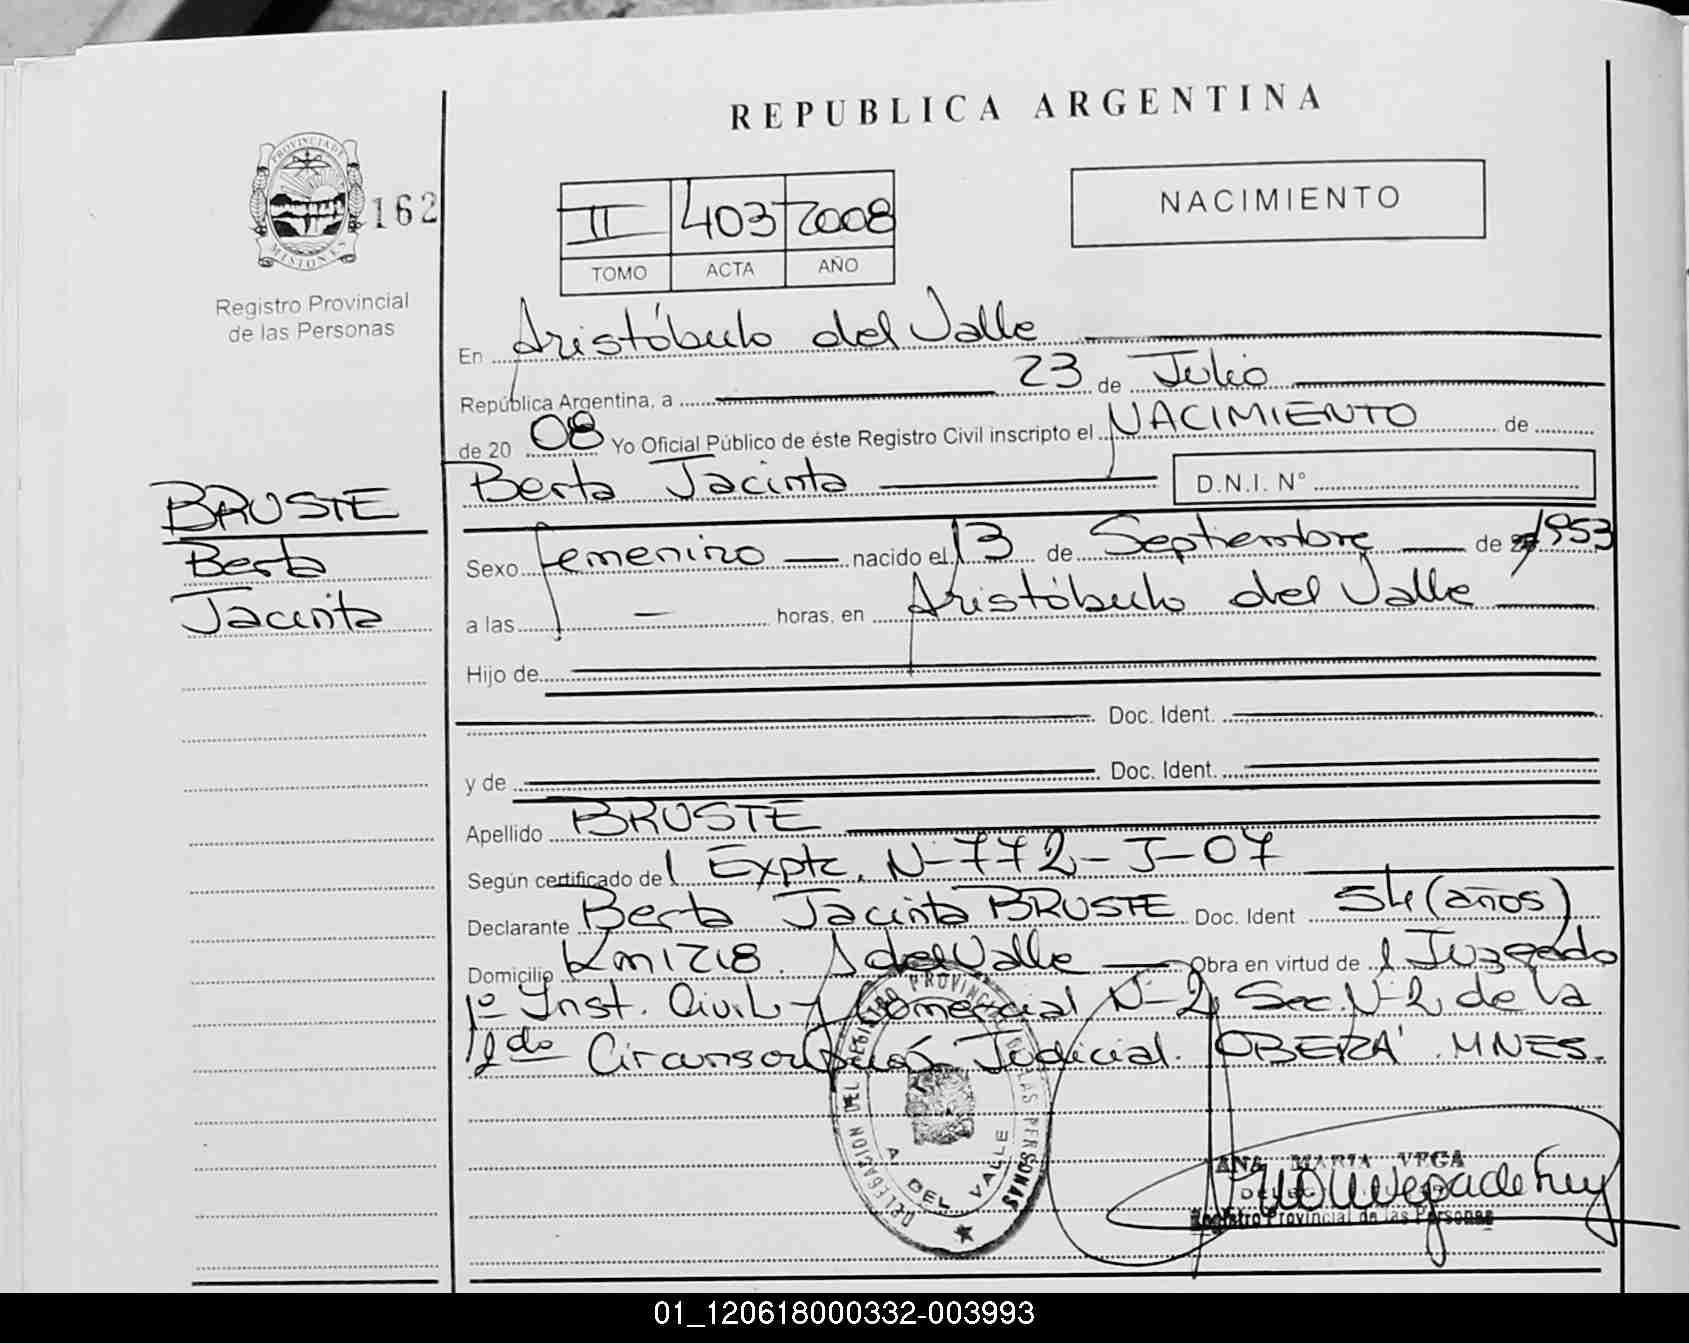 REPUBLICA ARGENTINA
PROVINCIA DE
MISIONES
162
Registro Provincial
de las Personas
II 403 2008
TOMO ACTA AÑO
NACIMIENTO
En Aristóbulo del Valle
República Argentina, a 23 de Julio
de 20 08 Yo Oficial Público de éste Registro Civil inscripto el NACIMIENTO de
Berta Jacinta D.N.I. N°
BRUSTE
Berta
Jacinta
Sexo femenino — nacido el 13 de Septiembre — de 1953
a las — horas, en Aristóbulo del Valle
Hijo de
Doc. Ident.
y de Doc. Ident.
Apellido BRUSTE
Según certificado de l Expte. N-772-J-07
Declarante Berta Jacinta BRUSTE Doc. Ident 54 (años)
Domicilio Km 1218. A del Valle — Obra en virtud de l Juzgado
1º Inst. Civil y Comercial N-2, Sec. N-2 de la
2do Circunscripción Judicial. OBERÁ. MNES.
DELEGACION DEL REGISTRO PROVINCIAL DE LAS PERSONAS
A DEL VALLE
ANA MARIA VEGA
Registro Provincial de las Personas
01_120618000332-003993